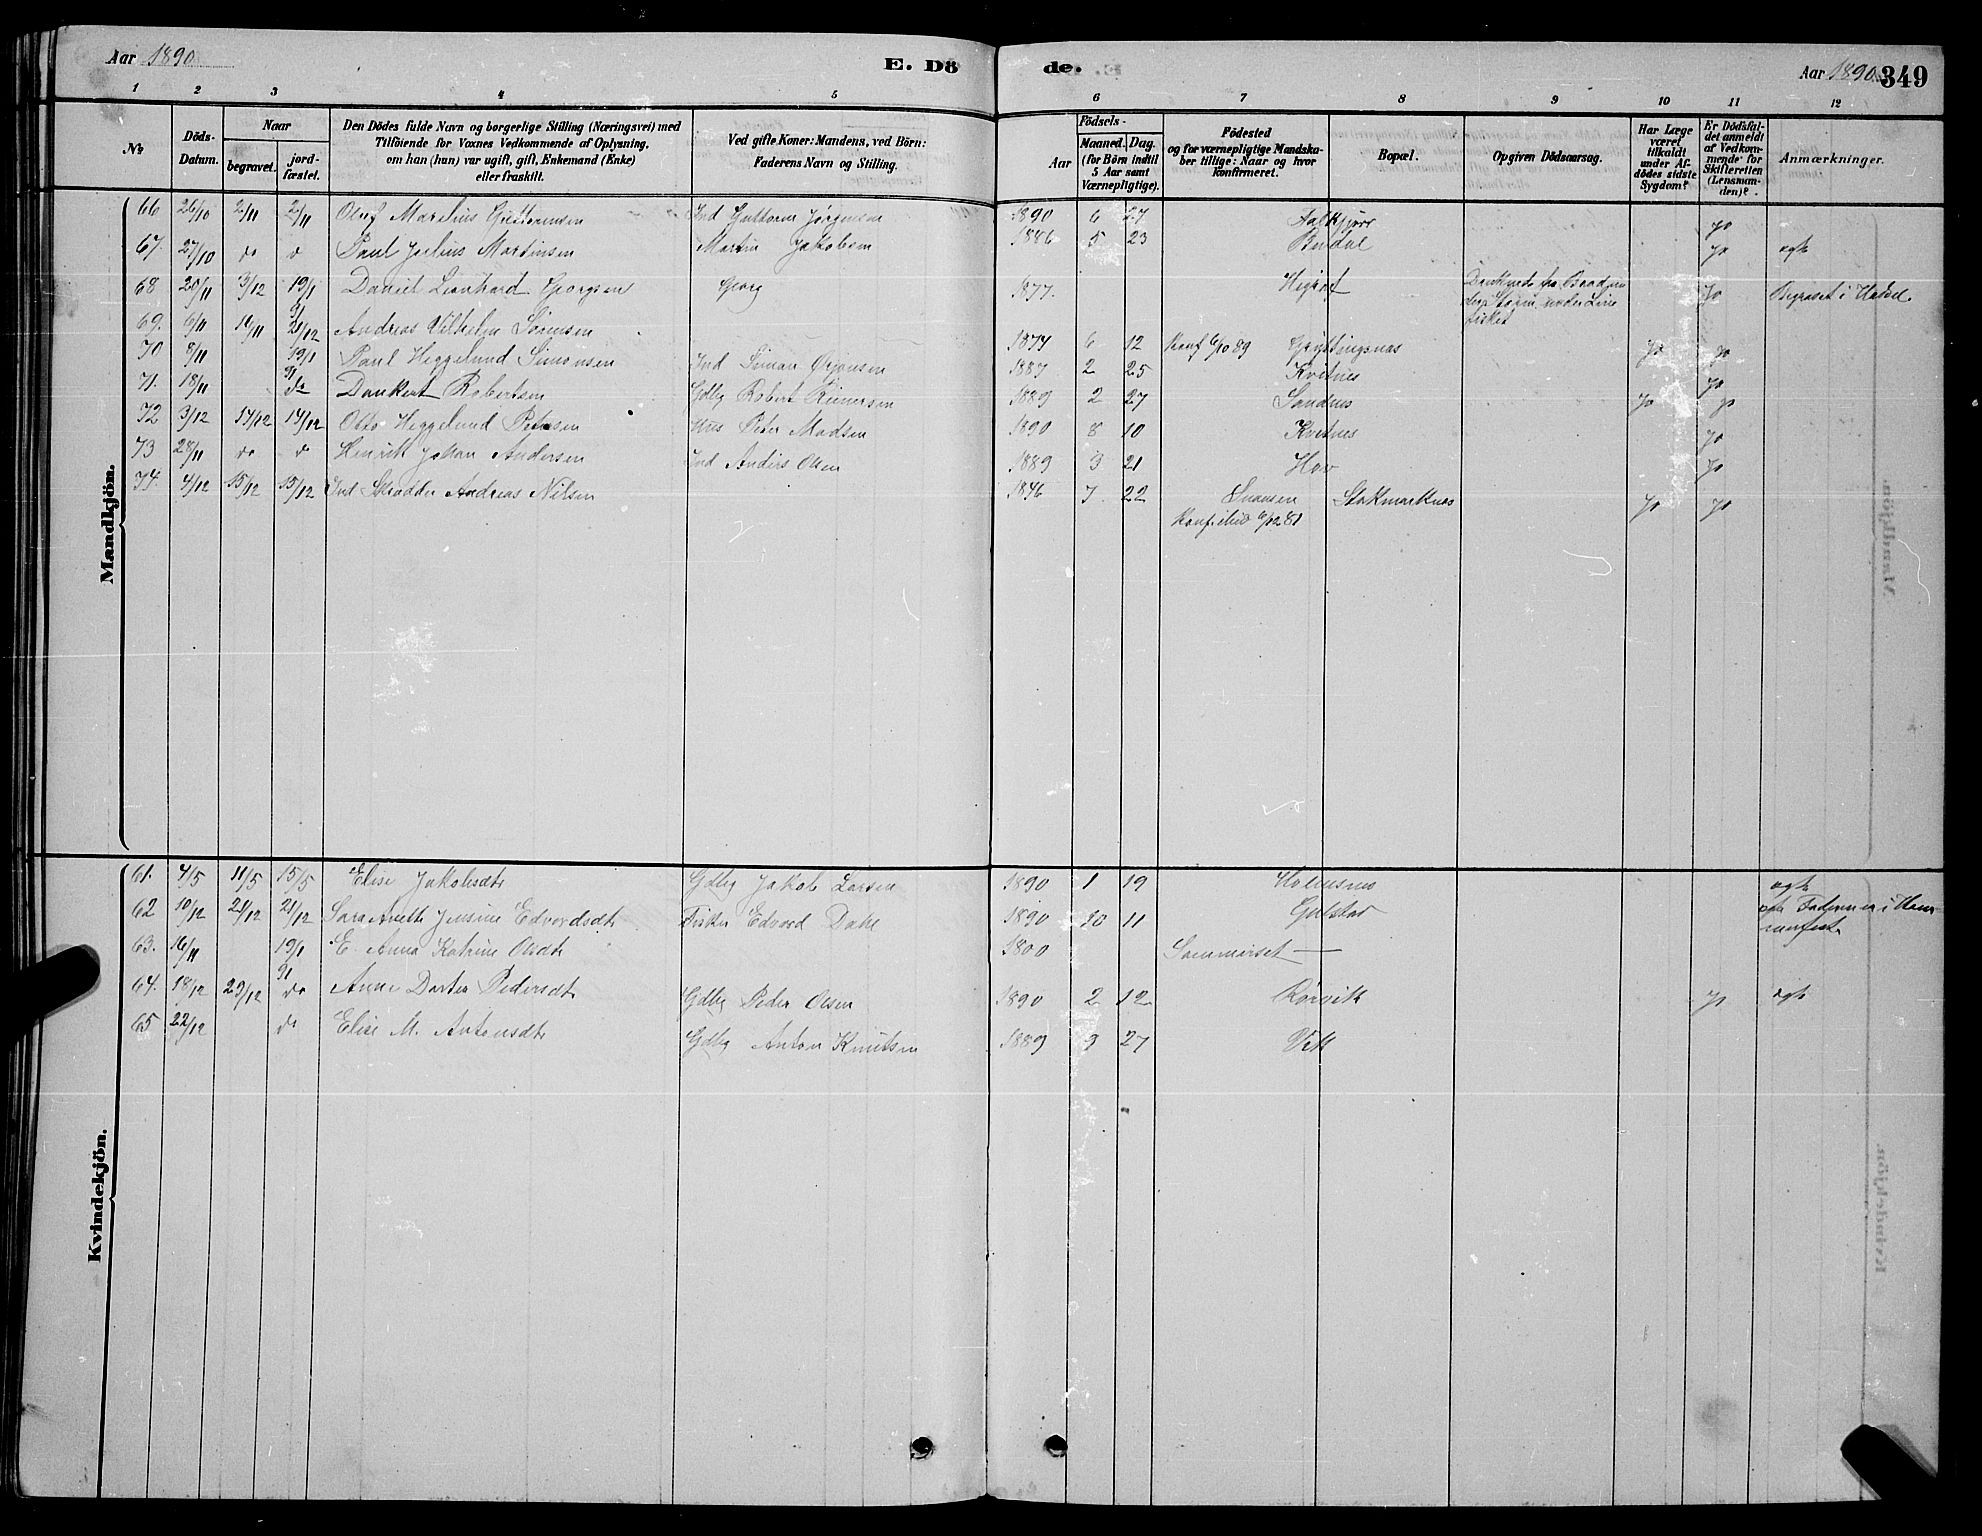 Aar 1890
E. Dö
de.
Aar 1890
349
1 2 3 4 5 6 7 8 9 10 11 12
No
Döds-Datum.
Naar
begravet.
jord-fæstet.
Den Dödes fulde Navn og borgerlige Stilling (Næringsvei) med
Tilföiende for Voxnes Vedkommende af Oplysning,
om han (hun) var ugift, gift, Enkemand (Enke)
eller fraskilt.
Ved gifte Koner: Mandens, ved Börn:
Faderens Navn og Stilling.
Födsels-
Aar
Maaned. Dag.
(for Börn indtil
5 Aar samt
Værnepligtige).
Födested
og for værnepligtige Mandska-
ber tillige: Naar og hvor
konfirmeret.
Bopæl.
Opgiven Dödsaarsag.
Har Læge
været
tilkaldt
under Af-
dödes sidste
Sygdom?
Er Dödsfal-
det anmeldt
af Vedkom-
mende for
Skifteretten
(Lensman-
den)?
Anmærkninger.
Mandkjön.
66 26/10 2/11 2/11 Oluf Marelius Guttormsen Ind Guttorm Jørgensen 1890 6 27 jo
67. 27/10 do d Paul Julius Martinsen Martin Jakobsen 1886 5 23 Budal jo ogt
68 20/11 3/12 19/1 91 Daniel Leonhard Georgsen Georg 1877. under jo Begravet i Hadsel
69. 6/11 21/12 Andreas Vilhelm Sørensen 1874 6 12 Konf 6/10 89 jo jo
70 8/11 19/1 91 Paul Heggelund Simonsen Ind Simon 1887 2 25 Kvitnes jo
71. 18/11 do Dankert Robertsen Gdbg Robert 1889 2 27 Sandnes jo jo
72 3/12 14/12 14/12 Otto Heggelund Petersen Hus Peter Madsen 1890 8 10 Kvitnes jo
73 28/11 do d Henrik Johan Andersen Ind Anders Olsen 1889 3 21 Hov jo
74. 4/12 15/12 15/12 Ind Skrædder Andreas Nilsen 1846 7 22 Snaasen Stokmarknes jo jo
Kvindekjön.
61. 4/5 11/5 15/5 Elise Jakobsdtr Gdbg Jakob Larsen 1890 1 19 Holmsnes ogt
62 10/12 21/12 21/12 Sara Anette Jensine Edvardsdtr Fisker Edvard Dahl 1890 10 11 Gulstad Faderen er i Ham
merfest
63. 16/11 19/1 91 E. Anna Katrine Olsdtr 1800 Sommarset
64. 18/12 29/12 do Anne Dortea Pedersdtr Gdbg Peder Olsen 1890 2 12 Rørvik jo ogt
65 22/12 do Elise M. Antonsdtr Gdbg Anton Knutsen 1889 9 27 Vik